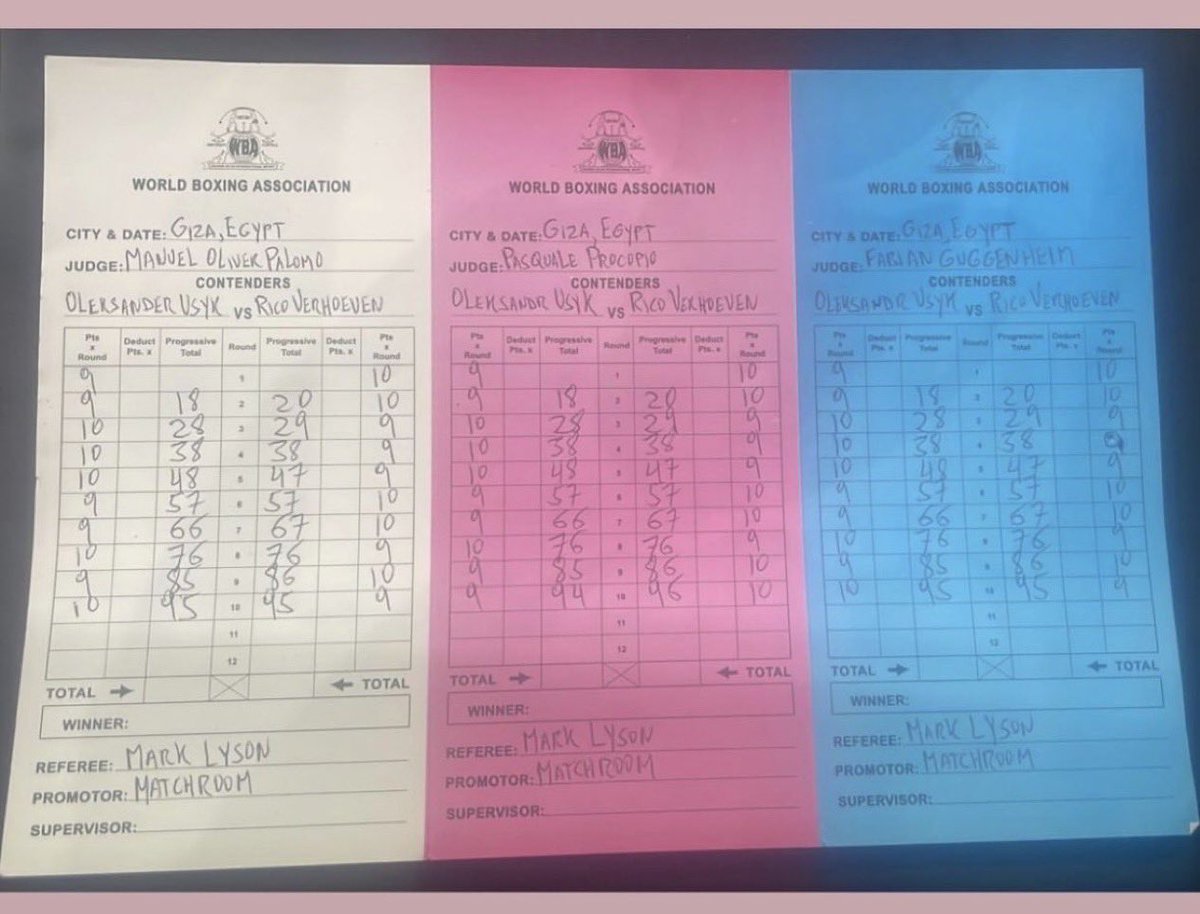 WBA
WORLD BOXING ASSOCIATION
CITY & DATE: GIZA, EGYPT
JUDGE: MANUEL OLIVER PALOMO
CONTENDERS
OLEKSANDER USYK VS RICO VERHOEVEN
Pts x Round Deduct Pts. x Progressive Total Round Progressive Total Deduct Pts. x Pts x Round
9 1 10
9 18 2 20 10
10 28 3 29 9
10 38 4 38 9
10 48 5 47 9
9 57 6 57 10
9 66 7 67 10
10 76 8 76 9
9 85 9 86 10
10 95 10 95 9
11
12
TOTAL TOTAL
WINNER:
REFEREE: MARK LYSON
PROMOTOR: MATCHROOM
SUPERVISOR:
WBA
WORLD BOXING ASSOCIATION
CITY & DATE: GIZA, EGYPT
JUDGE: PASQUALE PROCOPIO
CONTENDERS
OLEKSANDR USYK VS RICO VERHOEVEN
Pts x Round Deduct Pts. x Progressive Total Round Progressive Total Deduct Pts. x Pts x Round
9 1 10
9 18 2 20 10
10 28 3 29 9
10 38 4 38 9
10 48 5 47 9
9 57 6 57 10
9 66 7 67 10
10 76 8 76 9
9 85 9 86 10
9 94 10 96 10
11
12
TOTAL TOTAL
WINNER:
REFEREE: MARK LYSON
PROMOTOR: MATCHROOM
SUPERVISOR:
WBA
WORLD BOXING ASSOCIATION
CITY & DATE: GIZA, EGYPT
JUDGE: FABIAN GUGGENHEIM
CONTENDERS
OLEKSANDR USYK VS RICO VERHOEVEN
Pts x Round Deduct Pts. x Progressive Total Round Progressive Total Deduct Pts. x Pts x Round
9 1 10
9 18 2 20 10
10 28 3 29 9
10 38 4 38 9
10 48 5 47 9
9 57 6 57 10
9 66 7 67 10
10 76 8 76 9
9 85 9 86 10
10 95 10 95 9
11
12
TOTAL TOTAL
WINNER:
REFEREE: MARK LYSON
PROMOTOR: MATCHROOM
SUPERVISOR: